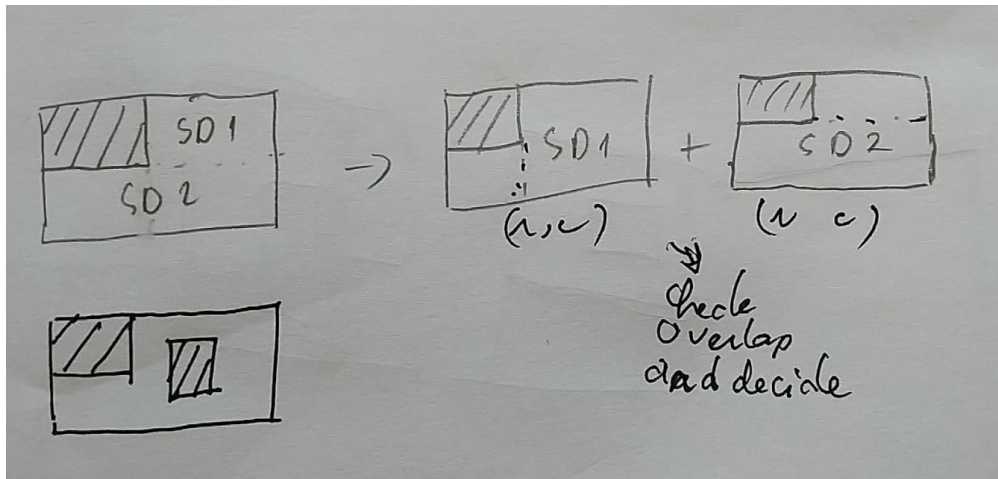 SD1
SD2
→
SD1
+
SD2
(r,c)
(r c)
Check
Overlap
and decide